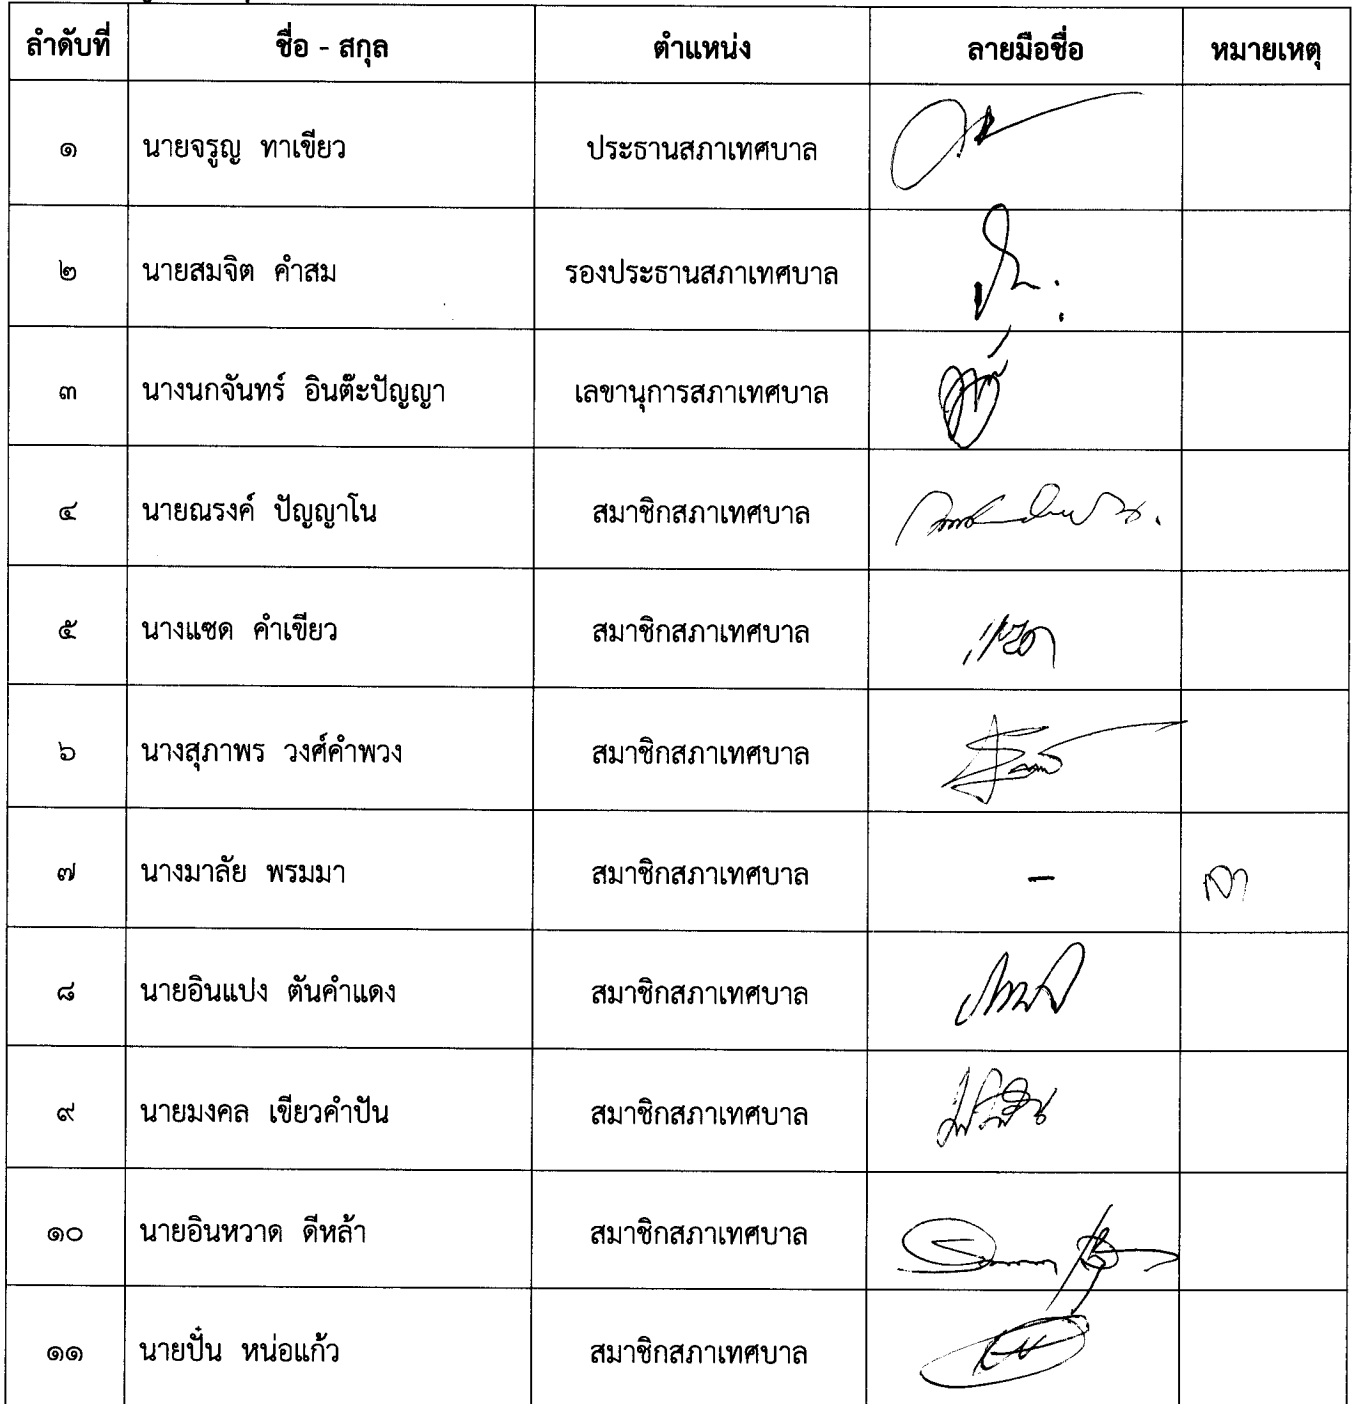 ลำดับที่ ชื่อ - สกุล ตำแหน่ง ลายมือชื่อ หมายเหตุ
๑ นายจรูญ ทาเขียว ประธานสภาเทศบาล
๒ นายสมจิต คำสม รองประธานสภาเทศบาล
๓ นางนกจันทร์ อินต๊ะปัญญา เลขานุการสภาเทศบาล
๔ นายณรงค์ ปัญญาโน สมาชิกสภาเทศบาล
๕ นางแซด คำเขียว สมาชิกสภาเทศบาล แซด
๖ นางสุภาพร วงศ์คำพวง สมาชิกสภาเทศบาล
๗ นางมาลัย พรมมา สมาชิกสภาเทศบาล - ลา
๘ นายอินแปง ตันคำแดง สมาชิกสภาเทศบาล
๙ นายมงคล เขียวคำปัน สมาชิกสภาเทศบาล
๑๐ นายอินหวาด ดีหล้า สมาชิกสภาเทศบาล
๑๑ นายปั๋น หน่อแก้ว สมาชิกสภาเทศบาล